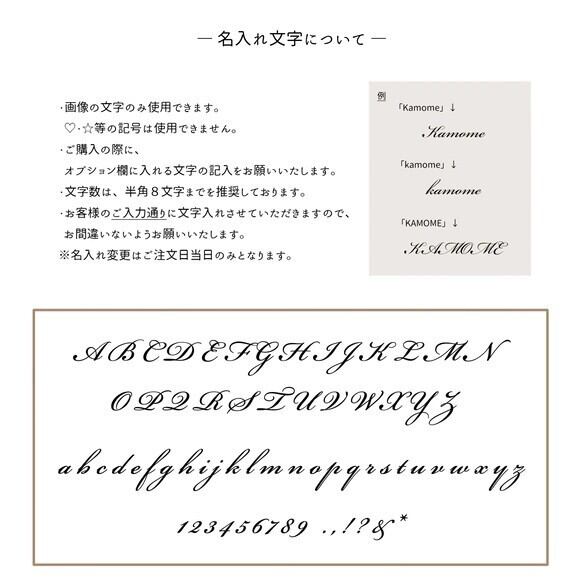 ― 名入れ文字について ―
・画像の文字のみ使用できます。
♡・☆等の記号は使用できません。
・ご購入の際に、
オプション欄に入れる文字の記入をお願いいたします。
・文字数は、半角８文字までを推奨しております。
・お客様のご入力通りに文字入れさせていただきますので、
お間違いないようお願いいたします。
※名入れ変更はご注文日当日のみとなります。
例
「Kamome」↓
Kamome
「kamome」↓
kamome
「KAMOME」↓
KAMOME
ABCDEFGHIJKLMN
OPQRSTUVWXYZ
abcdefghijklmnopqrstuvwxyz
123456789 .,!?&*